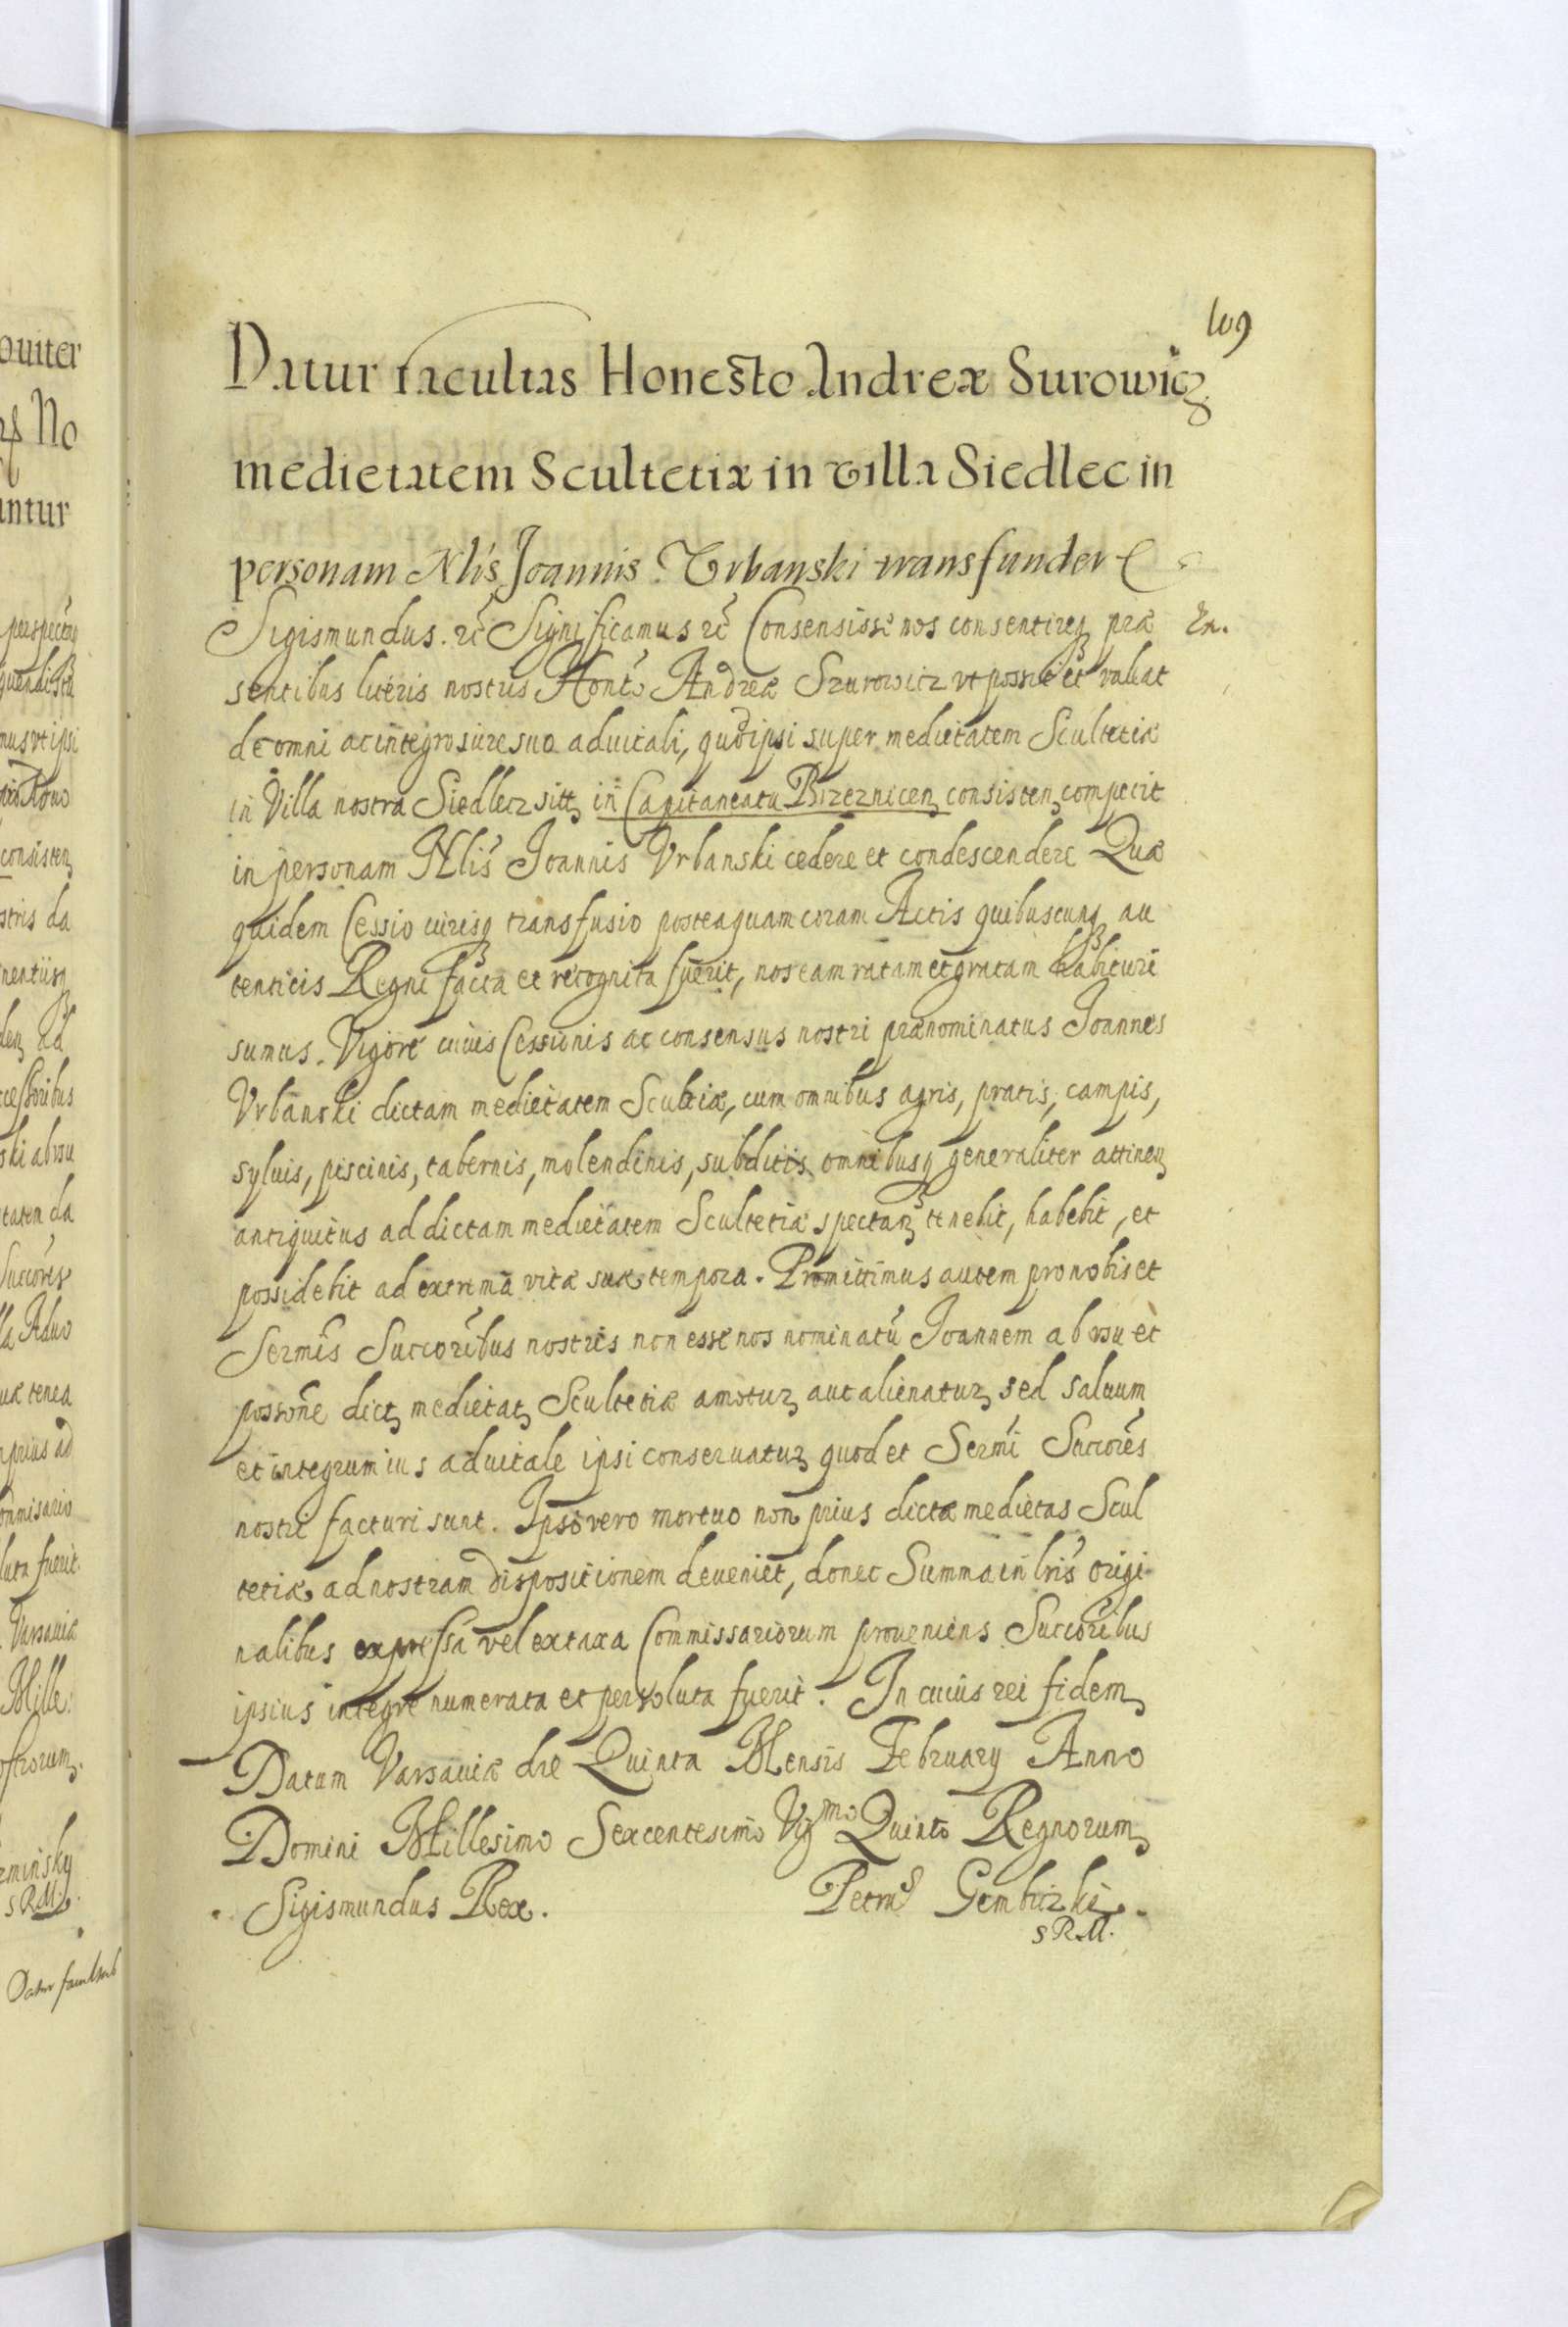 109
Datur facultas Honesto Andreæ Surowicz
medietatem Scultetiæ in villa Siedlec in
personam Nlis Joannis Vrbanski transfundere
Sigismundus. rc̃ Significamus rc̃ Consensisse nos consentireqȝ præ
sentibus literis nostris Honto Andreæ Szurowicz vt possit et valeat
de omni ac integro iure suo aduitali, quod ipsi super medietatem Scultetiæ
in Villa nostra Siedlecz sitt in Capitaneatu Brzeznicen consisten competit
in personam Nlis Joannis Vrbanski cedere et condescendere Quæ
quidem Cessio iurisqȝ transfusio posteaquam coram Actis quibuscunqȝ au
tenticis Regni facta et recognita fuerit, nos eam ratam et gratam habituri
sumus. Vigore cuius Cessionis ac consensus nostri prænominatus Joannes
Vrbanski dictam medietatem Scultiæ, cum omnibus agris, pratis, campis,
syluis, piscinis, tabernis, molendinis, subditis omnibusqȝ generaliter attinen
antiquitus ad dictam medietatem Scultetiæ spectan tenebit, habebit, et
possidebit ad extrema vitæ suæ tempora. Promittimus autem pro nobis et
Sermis Succoribus nostris non esse nos nominatũ Joannem ab vsu et
possone dict medietat Scultetiæ amotur aut alienatur sed saluum
et integrum ius aduitale ipsi conseruatur quod et Sermi Succores
nostri facturi sunt. Ipso vero mortuo non prius dicta medietas Scul
tetiæ ad nostram dispositionem deueniet, donec Summa in lris origi
nalibus expressa vel ex taxa Commissariorum proueniens Succoribus
ipsius integre numerata et persoluta fuerit. In cuius rei fidem
Datum Varsauiæ die Quinta Mensis February Anno
Domini Millesimo Sexcentesimo Vigmo Quinto Regnorum
Sigismundus Rex. Petrus Gembiczki.
S R M.